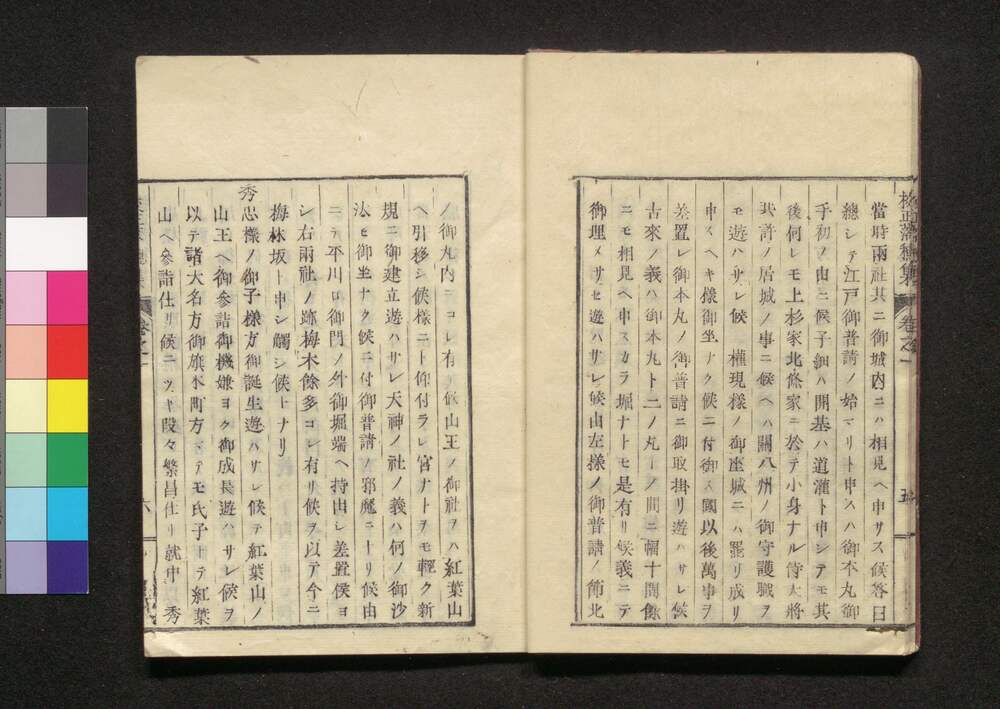 當時兩社共ニ御城内ニハ相見ヘ申サス候答曰
總シテ江戸御普請ノ始マリト申スハ御本丸御
手初ノ由ニ候子細ハ開基ハ道灌ト申シテモ其
後何レモ上杉家北條家ニ於テ小身ナル侍大將
共許ノ居城ノ事ニ候ヘハ關八州ノ御守護職ヲ
モ遊ハサレ候 權現様ノ御座城ニハ罷リ成リ
申スヘキ様御坐ナク候ニ付御入國以後萬事ヲ
差置レ御本丸ノ御普請ニ御取掛リ遊ハサレ候
古來ノ義ハ御本丸ト二ノ丸トノ間ニ幅十間餘
ニモ相見ヘ申スカラ堀ナトモ是有リ候義ニテ
御埋メサセ遊ハサレ候由左様ノ御普請ノ節北
五
ノ御丸内ニコレ有リ候山王ノ御社ヲハ紅葉山
ヘ引移シ候様ニト仰付ラレ宮ナトヲモ輕ク新
規ニ御建立遊ハサレ天神ノ社ノ義ハ何ノ御沙
汰モ御坐ナク候ニ付御普請ノ邪魔ニナリ候由
ニテ平川口御門ノ外御堀端ヘ持出レ差置候ヨ
シ右兩社ノ跡梅木餘多コレ有リ候ヲ以テ今ニ
梅林坂ト申シ觸シ候トナリ
秀忠様ノ御子様方御誕生遊ハサレ候テ紅葉山ノ
山王ヘ御參詣御機嫌ヨク御成長遊ハサレ候ヲ
以テ諸大名方御旗本町方マテモ氏子ニテ紅葉
山ヘ參詣仕リ候ニツキ段々繁昌仕リ就中 秀
六